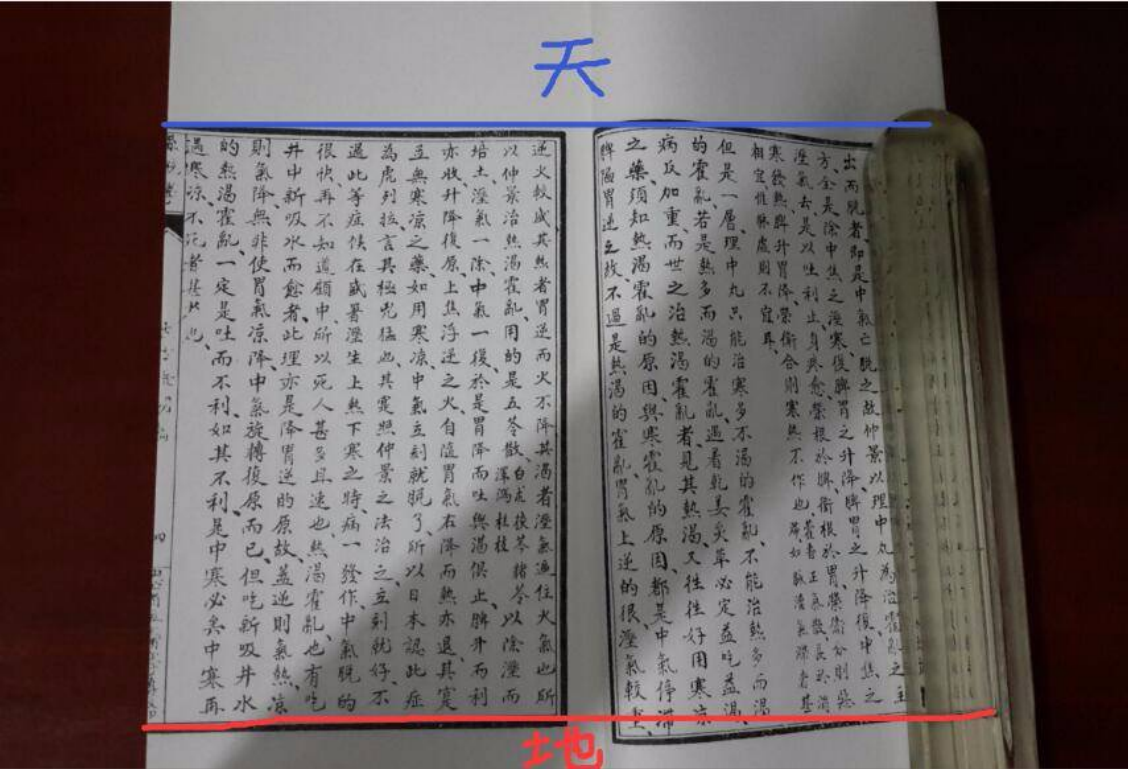 天
出而脫者、即是中氣亡脫之故、仲景以理中丸為治霍亂之主
方、全是除中焦之溼寒、復脾胃之升降、脾胃之升降復、中焦之
溼氣去、是以吐利止、身疼愈、榮根於脾、衛根於胃、榮衛分則惡
寒發熱、脾升胃降、榮衛合則寒熱不作也、
相宜、惟脉虛則不宜耳、
但是一層、理中丸只能治寒多不渴的霍亂、不能治熱多而渴
的霍亂、若是熱多而渴的霍亂、遇着乾姜炙草必定益吃益渴、
病反加重、而世之治熱渴霍亂者、見其熱渴、又往往好用寒凉
之藥、須知熱渴霍亂的原因、與寒霍亂的原因、都是中氣停滯
脾陷胃逆之故、不過是熱渴的霍亂、胃氣上逆的很、溼氣較重、
逆火較盛、其熱者胃逆而火不降、其渴者溼氣遏住火氣也、所
以仲景治熱渴霍亂、用的是五苓散、白朮茯苓豬苓澤瀉桂枝以除溼而
培土、溼氣一除、中氣一復、於是胃降而吐與渴俱止、脾升而利
亦收、升降復原、上焦浮逆之火、自隨胃氣右降而熱亦退、其實
並無寒凉之藥、如用寒凉、中氣立刻就脫了、所以日本認此症
為虎列拉、言其極兇猛也、其實照仲景之法治之、立刻就好、不
過此等症候、在盛暑溼生上熱下寒之時、病一發作、中氣脫的
很快、再不知道顧中、所以死人甚多且速也、熱渴霍亂、也有吃
井中新吸水而愈者、此理亦是降胃逆的原故、蓋逆則氣熱、凉
則氣降、無非使胃氣凉降、中氣旋轉復原而已、但吃新吸井水
的熱渴霍亂、一定是吐而不利、如其不利、是中寒必矣、中寒再
遇寒凉、不死者甚少也、
四
地